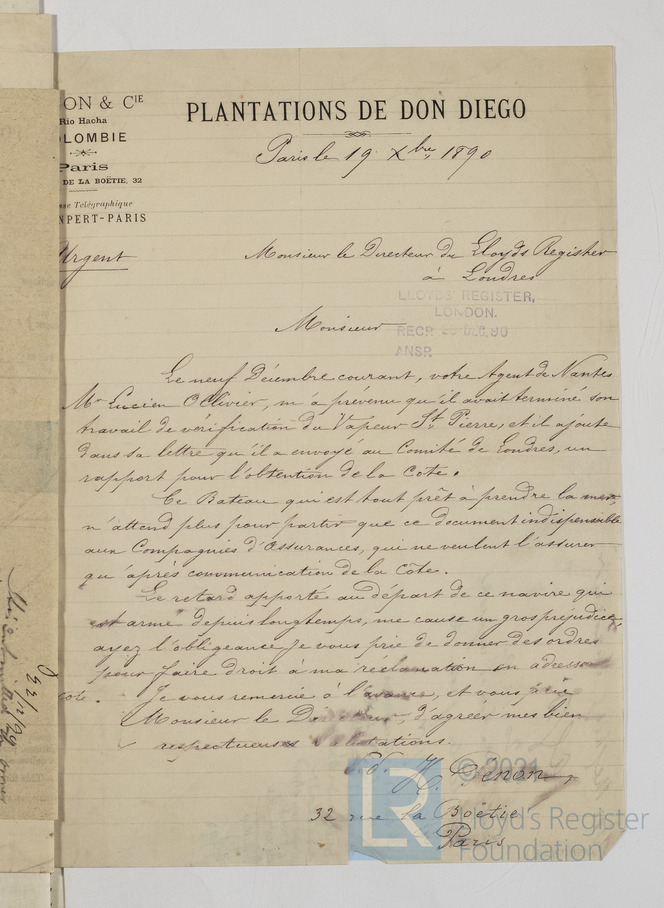 ON & CIE
Rio Hacha
OLOMBIE
Paris
DE LA BOËTIE, 32
sse Télégraphique
NPERT-PARIS
PLANTATIONS DE DON DIEGO
Paris le 19 Xbre 1890
Urgent
Monsieur le Directeur du Lloyds Register
à Londres
LLOYDS' REGISTER,
LONDON.
RECR DEC. 90
ANSR
Monsieur
Le neuf Décembre courant, votre Agent de Nantes
Mr Lucien Ollivier, m'a prévenu qu'il avait terminé son
travail de vérification du Vapeur St. Pierre, et il ajoute
dans sa lettre qu'il a envoyé au Comité de Londres, un
rapport pour l'obtention de la Côte.
Ce Bateau qui est tout prêt à prendre la mer
n'attend plus pour partir que ce document indispensible
aux Compagnies d'Assurances, qui ne veulent l'assurer
qu'après communication de la côte.
Le retard apporté au départ de ce navire qui
est armé depuis longtemps, me cause un gros préjudice,
ayez l'obligeance je vous prie de donner des ordres
pour faire droit à ma réclamation
cote. Je vous remercie à l'avance, et vous prie
Monsieur le Directeur, d'agréer mes bien
respectueuses salutations.
H. Denon
32 rue la Boëtie
Paris
23/12/90
© 2021
LR
Lloyd's Register
Foundation